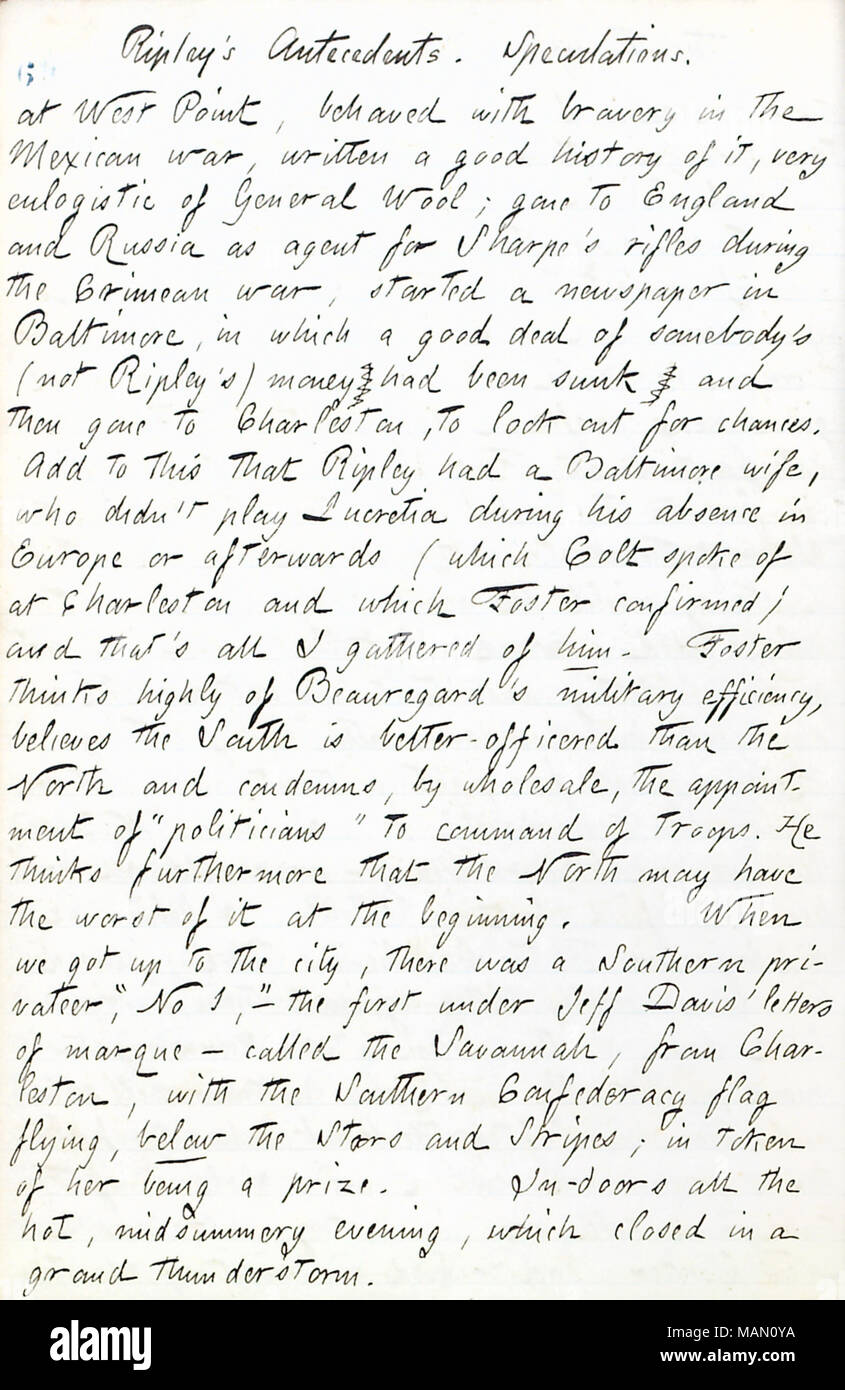 Ripley's Antecedents. Speculations.
at West Point, behaved with bravery in the
Mexican war, written a good history of it, very
eulogistic of General Wool; gone to England
and Russia as agent for Sharpe's rifles during
the Crimean war, started a newspaper in
Baltimore, in which a good deal of somebody's
(not Ripley's) money had been sunk and
then gone to Charleston, to look out for chances.
Add to this that Ripley had a Baltimore wife,
who didn't play Lucretia during his absence in
Europe or afterwards (which Colt spoke of
at Charleston and which Foster confirmed)
and that's all I gathered of him. Foster
thinks highly of Beauregard's military efficiency,
believes the South is better-officered than the
North and condemns, by wholesale, the appoint-
ment of "politicians" to command of troops. He
thinks furthermore that the North may have
the worst of it at the beginning. When
we got up to the city, there was a Southern pri-
vateer, "No 1," — the first under Jeff Davis' letters
of marque — called the Savannah, from Char-
leston, with the Southern Confederacy flag
flying, below the Stars and Stripes; in token
of her being a prize. In-doors all the
hot, midsummery evening, which closed in a
grand thunderstorm.
alamy
Image ID: MAN0YA
www.alamy.com